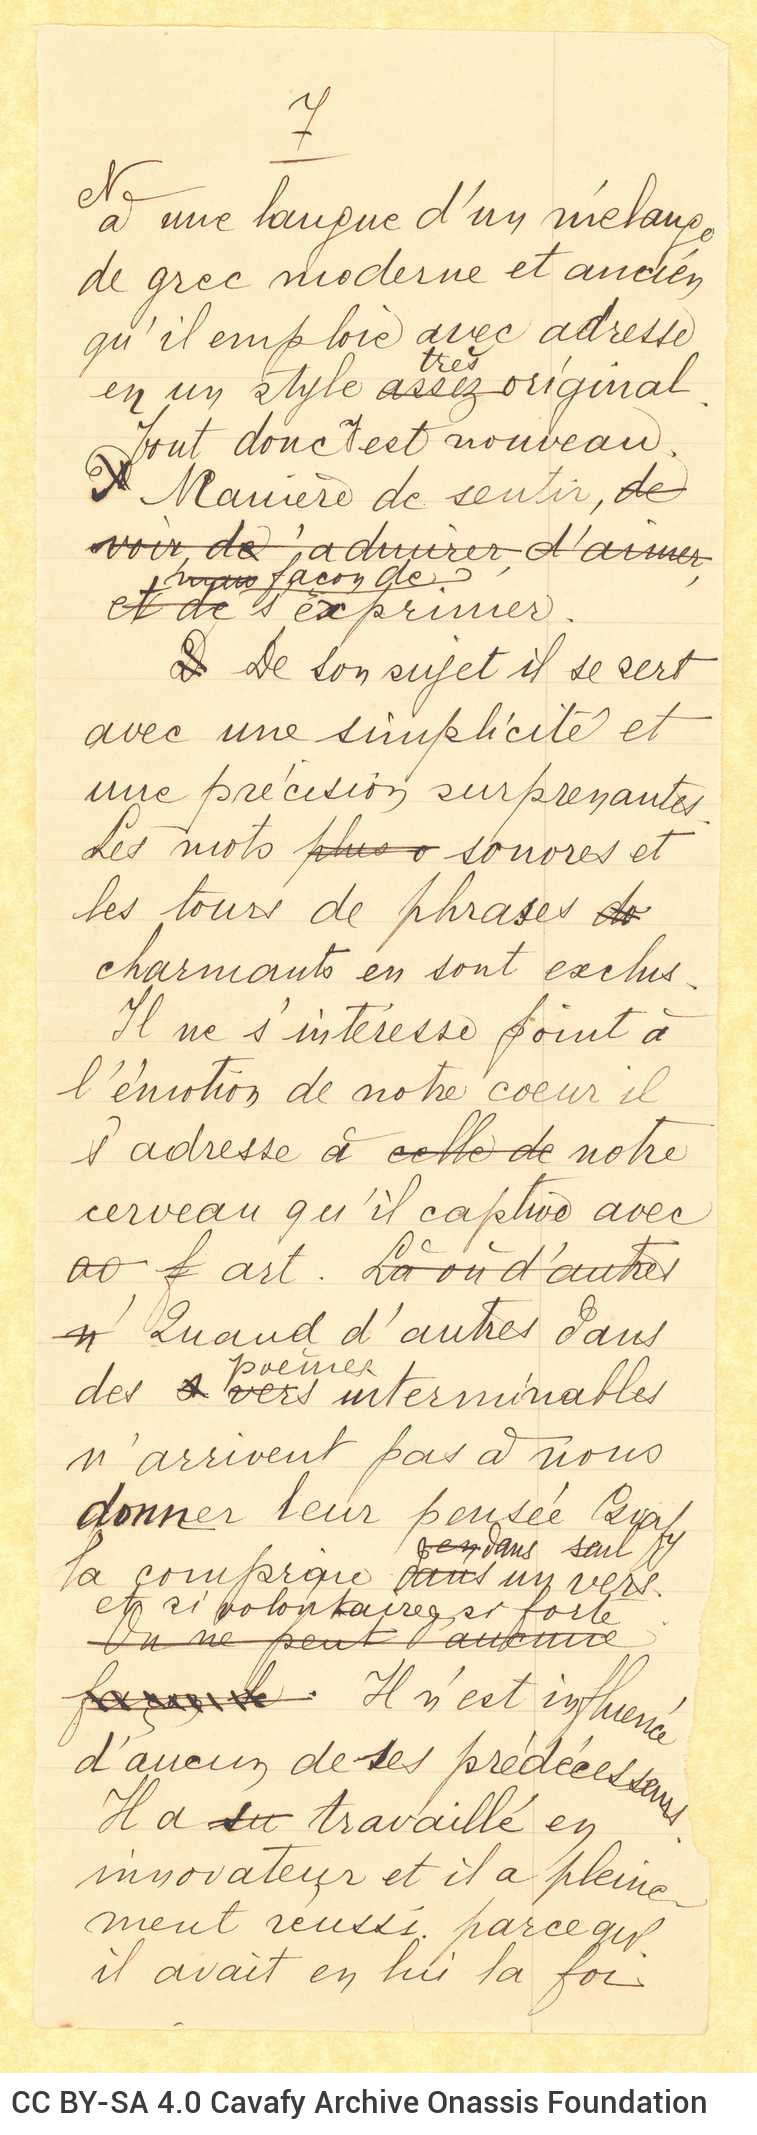 7
à une langue d'un mélange
de grec moderne et ancien
qu'il emploie avec adresse
très
en un style assez original.
Tout donc est nouveau.
Manière de sentir, de
voir, de d'admirer, d'aimer,
façon de
et de s'exprimer.
D De son sujet il se sert
avec une simplicité et
une précision surprenantes.
Les mots plus o sonores et
les tours de phrases
charmants en sont exclus.
Il ne s'intéresse point à
l'émotion de notre coeur il
s'adresse à celle de notre
cerveau qu'il captive avec
f art. Là où d'autres
n' Quand d'autres dans
poèmes
des vers interminables
n'arrivent pas à nous
donner leur pensée Cavafy
dans seul
la comprime dans un vers.
et si volontaire, si forte
On ne peut d'aucune
Il n'est influencé
d'aucun de ses prédécesseurs.
Il a su travaillé en
innovateur et il a pleine-
ment réussi. parce qu'
il avait en lui la foi